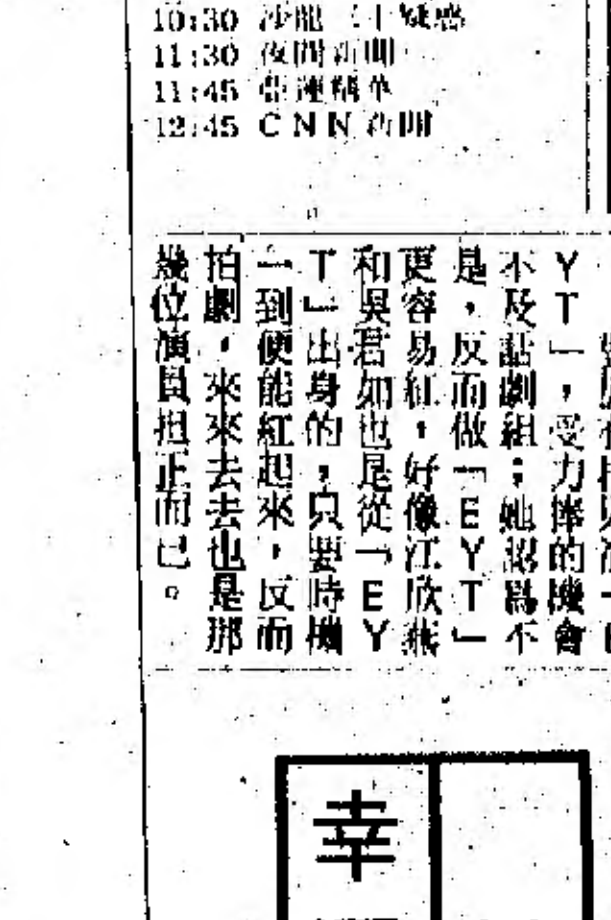 10:30 沙龍
11:30 夜間新聞
11:45 亞運精華
12:45 CNN新聞
YT」，受力捧的機會
不及話劇組；她認爲不
是，反而做「EYT」
更容易紅，好像江欣燕
和吳君如也是從「EY
T」出身的，只要時機
一到便能紅起來，反而
拍劇，來來去去也是那
幾位演員担正而已。
幸